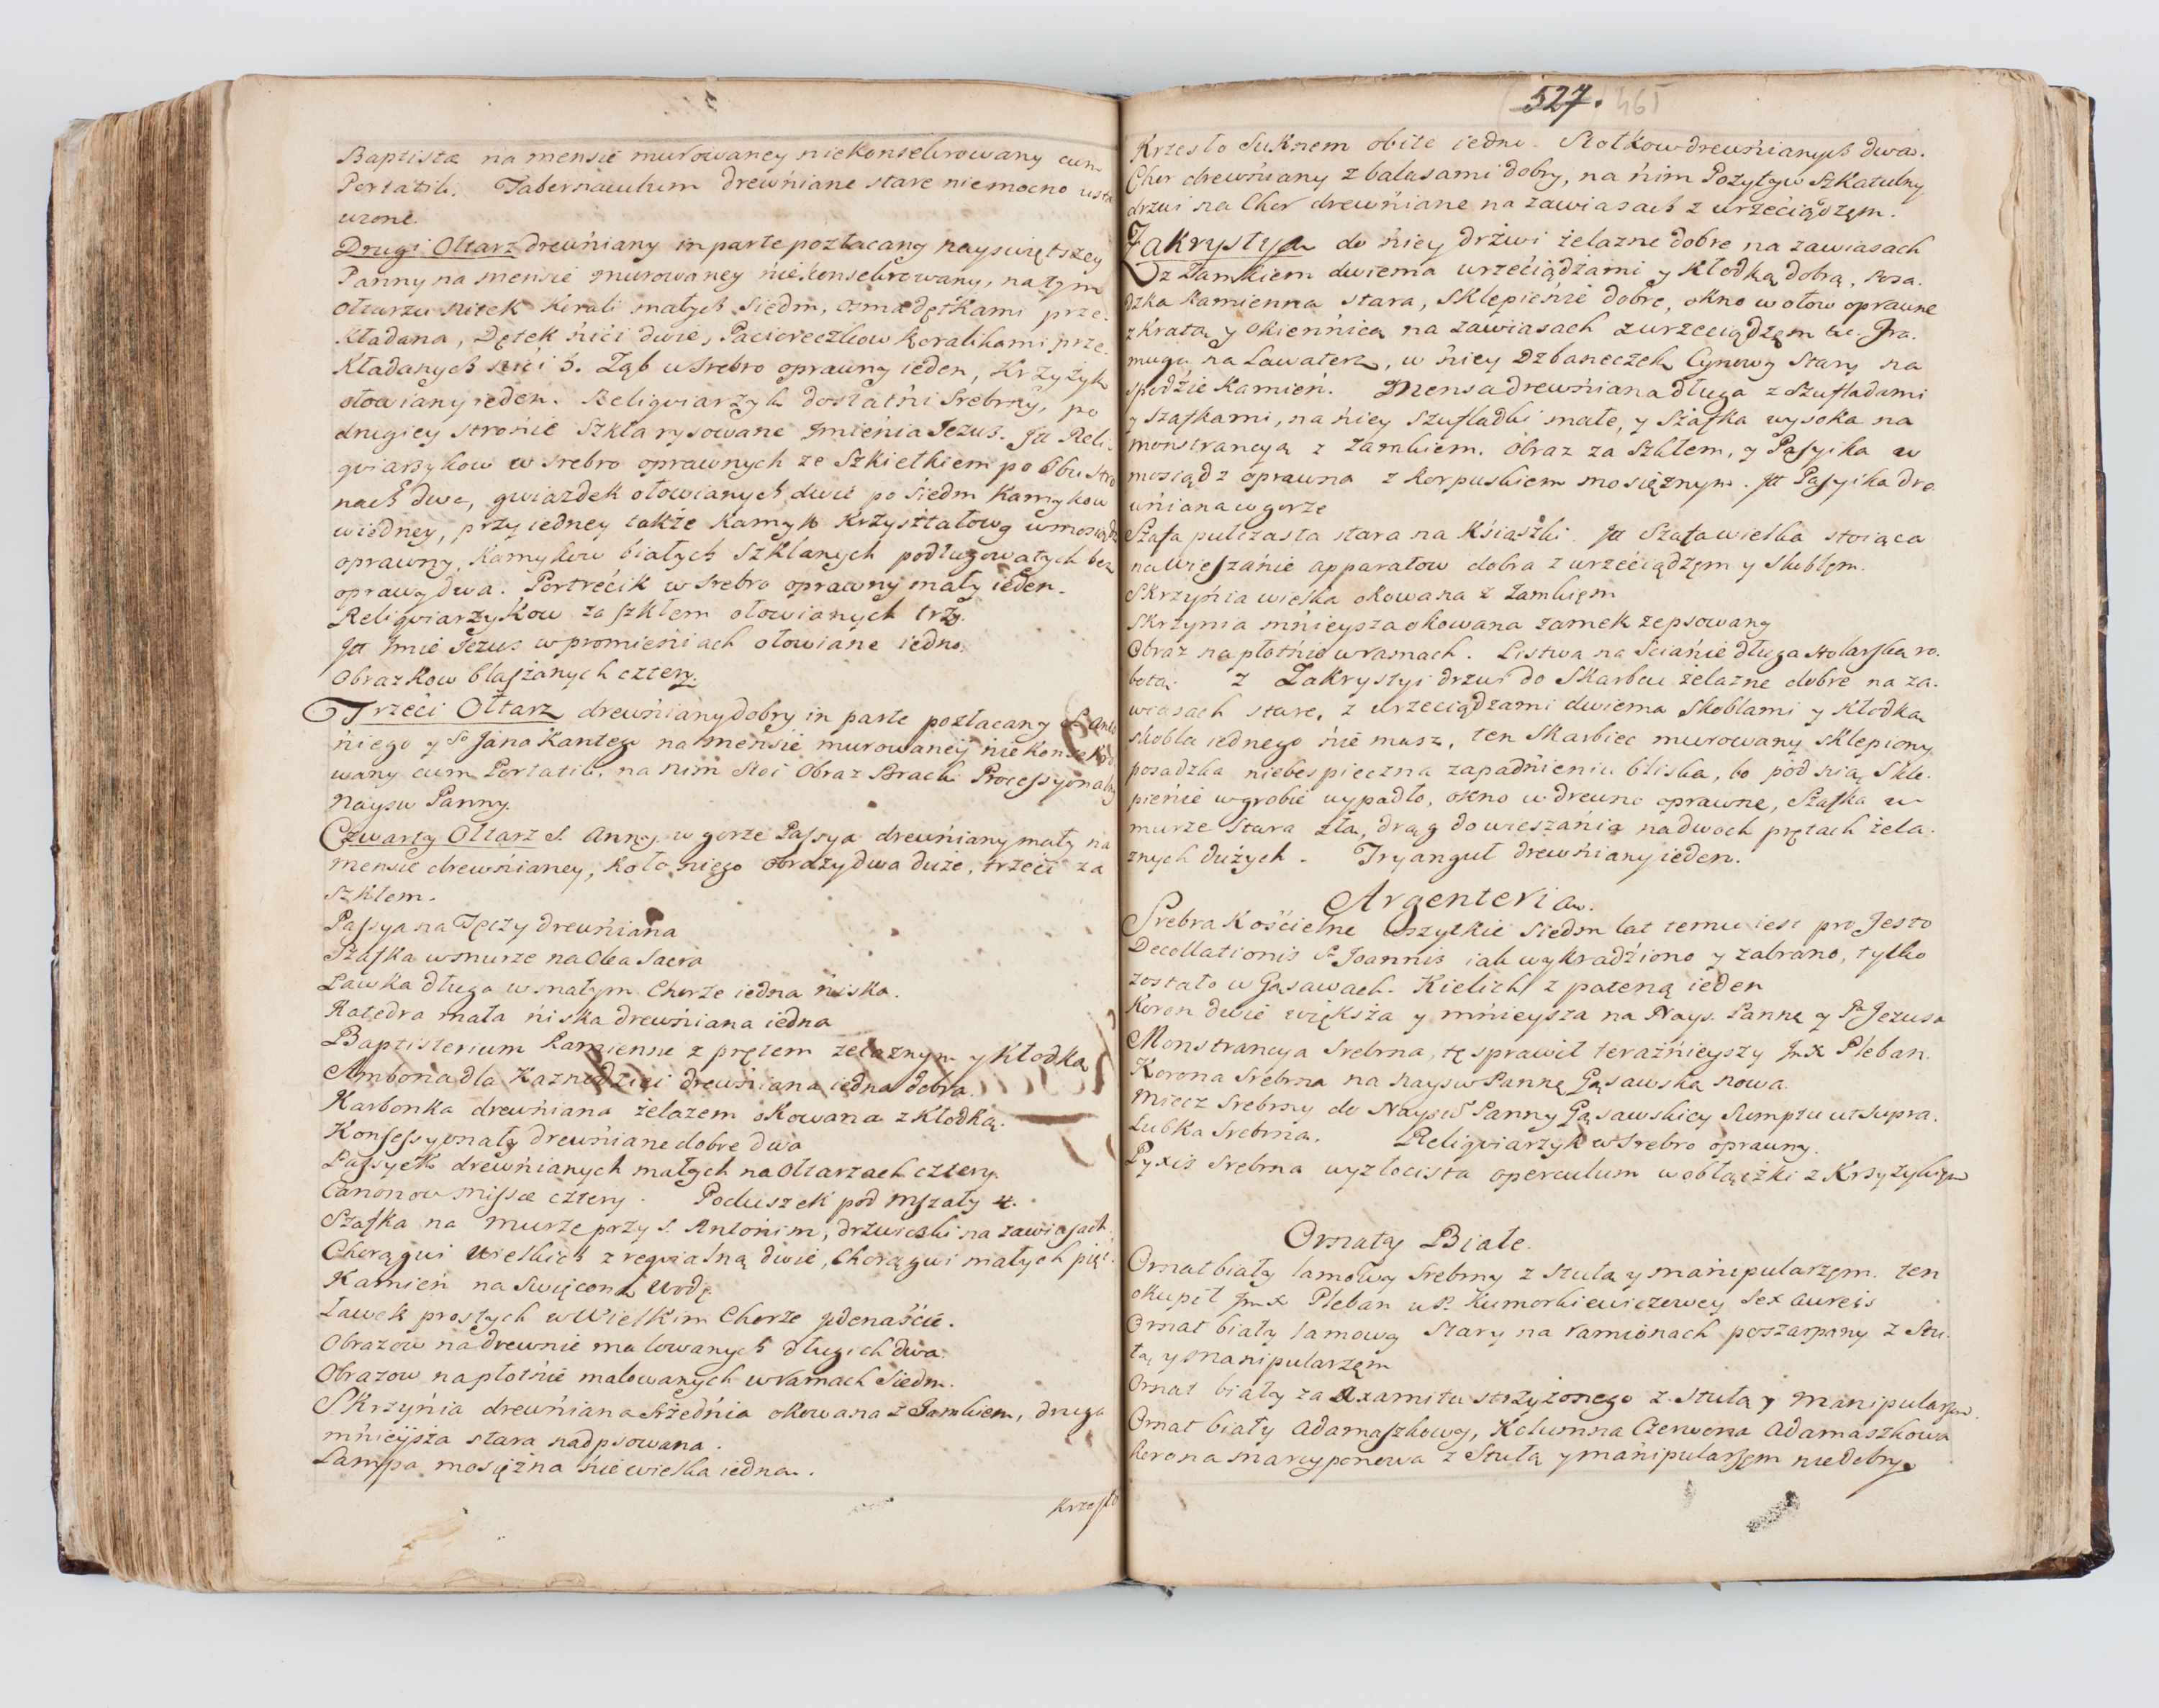 Baptistæ na mensie murowaney niekonsekrowany cum
Portatili. Tabernaculum drewniane stare niemocno usta
wione.
Drugi Ołtarz drewniany in parte pozłacany Nayswiętszey
Panny na mensie murowaney niekonsekrowany, na tym
Ołtarzu nitek Korali małych siedm, dętkami prze-
kładana, Dętek nici dwie, Pacioreczkow Koralikami prze-
kładanych nici 3. Ząb w srebro oprawny ieden, Krzyżyk
ołowiany ieden. Reliqwiarzyk dostatni Srebrny, po
drugiey stronie Szkła rysowane Imienia Jezus. Itt Reli-
qwiarzykow w srebro oprawnych ze Szkiełkiem po Obu stro
nach dwa, gwiazdek ołowianych dwie po siedm Kamykow
w iedney, przy iedney także Kamyk Krzyształowy w mosiądz
oprawny, Kamykow białych Szklanych podługowatych bez
oprawy dwa. Portrecik w srebro oprawny mały ieden.
Reliqwiarzykow za szkłem ołowianych trzy.
Itt Imie Jezus w promieniach ołowiane iedno.
Obrazkow blaszanych cztery.
Trzeci Ołtarz drewniany dobry in parte pozłacany S. Anto
niego y So Jana Kantego na mensie murowaney nie konsekro
wany cum Portatili, na nim stoi Obraz Brack. Processyonalny
Naysw Panny.
Czwarty Ołtarz S. Anny, w gorze Passya drewniany mały na
mensie drewnianey, koło niego obrazy dwa duże, trzeci za
szkłem.
Passya na Tęczy drewniana
Szafka w murze na Olea Sacra
Ławka długa w małym Chorze iedna niska.
Katedra mała niska drewniana iedna
Baptisterium kamienne z prętem żelaznym y Kłodką
Ambona dla Kaznodziei drewniana iedna dobra.
Karbonka drewniana żelazem okowana z Kłodką.
Konfessyonały drewniane dobre dwa
Passyek drewnianych małych na Ołtarzach cztery.
Canonow Missæ cztery. Poduszek pod Mszały 4.
Szafka na murze przy S. Antonim, drzwiczki na zawiasach.
Chorągwi wielkich z reqwialną dwie, Chorągwi małych pięć.
Kamień na Swięconą Wodę.
Ławek prostych w Wielkim Chorze jedenaście.
Obrazow na drewnie malowanych długich dwa.
Obrazow na płotnie malowanych w ramach siedm.
Skrzynia drewniana srzednia okowana z Zamkiem, druga
mnieysza stara nadpsowana.
Lampa mosiężna nie wielka iedna.
Krzesło
527. 465
Krzesło Suknem obite iedno. Stołkow drewnianych dwa.
Chor drewniany z balasami dobry, na nim Pozytyw Szkatulny
drzwi na Chor drewniane na zawiasach z wrzeciądzem.
Zakrystya do niey drzwi żelazne dobre na zawiasach
z Zamkiem dwiema wrzeciądzami y kłodką dobrą, Posa-
dzka kamienna stara, Sklepienie dobre, okno w ołow oprawne
z kratą y okiennicą na zawiasach z wrzeciądzem etc. Fra-
muga na Lawaterz, w niey Dzbaneczek Cynowy Stary na
spodzie Kamień. Mensa drewniana długa z Szufladami
y szafkami, na niey szufladki małe, y Szafka wysoka na
monstrancyą z zamkiem. Obraz za Szkłem, y Passyika w
mosiądz oprawna z korpuskiem mosiężnym. Itt Passyika dre-
wniana w gorze
Szafa pulczasta stara na Ksiąszki. Itt Szafa wielka stoiąca
na wieszanie apparatow dobra z wrzeciądzem y Skoblem.
Skrzynia wielka okowana z Zamkiem
Skrzynia mnieysza okowana zamek zepsowany
Obraz na płotnie w ramach. Listwa na Scianie długa stolarska ro-
bota. Z Zakrystyi drzwi do Skarbcu żelazne dobre na za-
wiasach stare, z wrzeciądzami dwiema Skoblami y Kłodką
skobla iednego nie masz, ten Skarbiec murowany sklepiony
posadzka niebespieczna zapadnieniu bliska, bo pod nią Skle-
pienie w grobie wypadło, okno w drewno oprawne, Szafka w
murze stara zła, drąg do wieszania na dwoch prętach żela-
znych dużych. Tryanguł drewniany ieden.
Argenteria.
Srebra Kościelne wszytkie siedm lat temu iest pro Festo
Decollationis S. Joannis iak wykradziono y zabrano, tylko
zostało w Gąsawach. Kielich z pateną ieden
Koron dwie większa y mnieysza na Nays. Pannę y Pa Jezusa
Monstrancya srebrna, tę sprawił teraźnieyszy Jmx Pleban.
Korona Srebrna na Naysw Pannę Gąsawską nowa.
Miecz Srebrny do Naysw Panny Gąsawskiey Sumptu ut supra.
Łubka Srebrna. Reliqwiarzyk w srebro oprawny.
Pyxis srebrna wyzłocista operculum w obłączki z Krzyżykiem
Ornaty Białe.
Ornat biały lamowy srebrny z stułą y manipularzem. ten
okupił Jmx Pleban u P. Kumorkiewiczowey Sex aureis
Ornat biały lamowy Stary na ramionach poszarpany z Stu-
łą y manipularzem
Ornat biały za Axamitu strzyżonego z stułą y Manipularzem.
Ornat biały Adamaszkowy, Kolumna Czerwona Adamaszkowa
korona marcyponowa z Stułą y manipularzem niedobry.